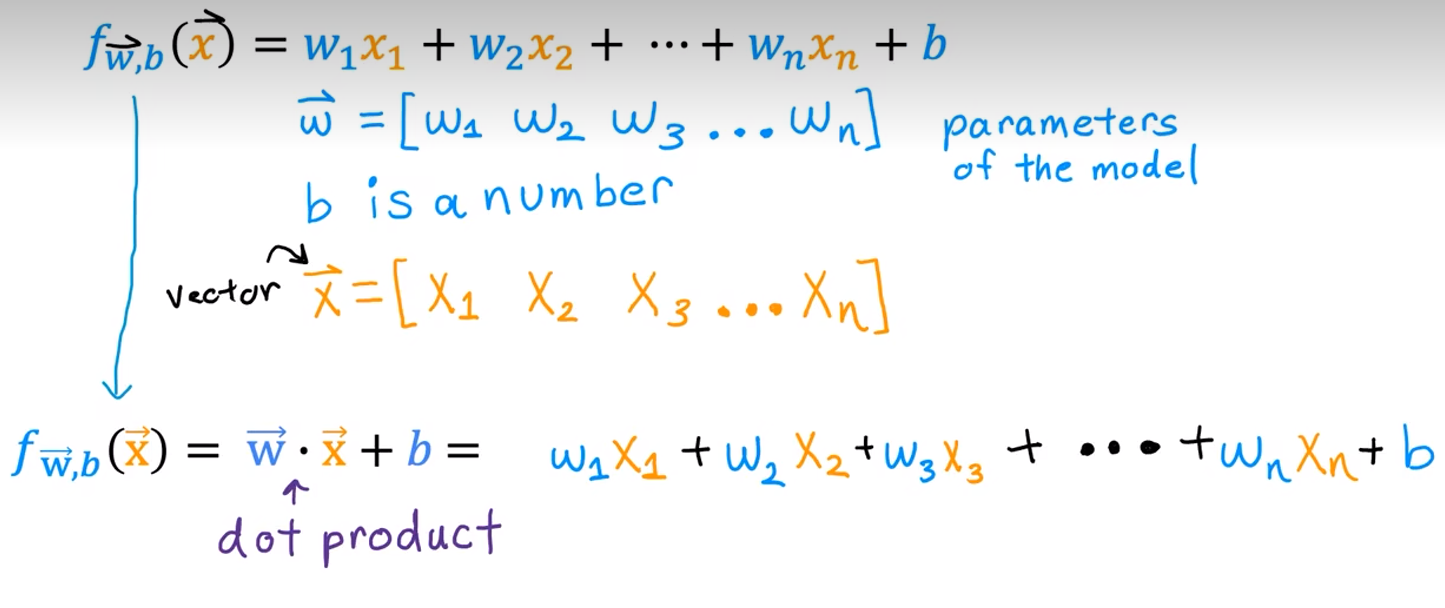 f_{\vec{w},b}(\vec{x}) = w₁x₁ + w₂x₂ + ⋯ + wₙxₙ + b
\vec{w} = [w₁ w₂ w₃ ... wₙ] parameters
of the model
b is a number
vector \vec{x} = [x₁ x₂ x₃ ... xₙ]
f_{\vec{w},b}(\vec{x}) = \vec{w} · \vec{x} + b = w₁x₁ + w₂x₂ + w₃x₃ + ... + wₙxₙ + b
dot product